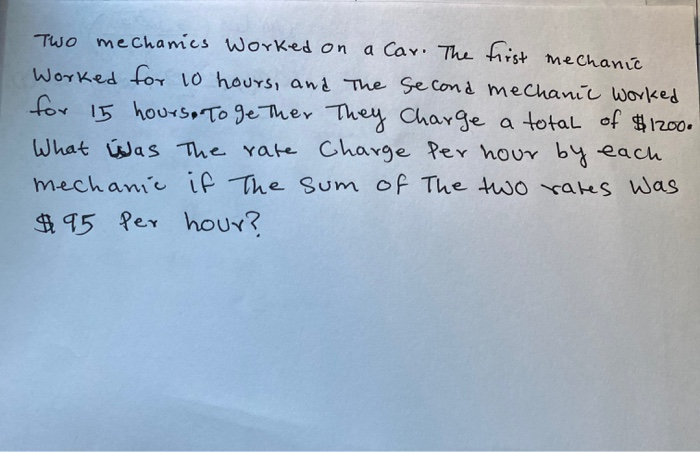 Two mechanics Worked on a Car. The first mechanic
Worked for 10 hours, and The Second mechanic worked
for 15 hours. Together They Charge a total of $1200.
What was The rate Charge Per hour by each
mechanic if The Sum of The two rates Was
$95 Per hour?